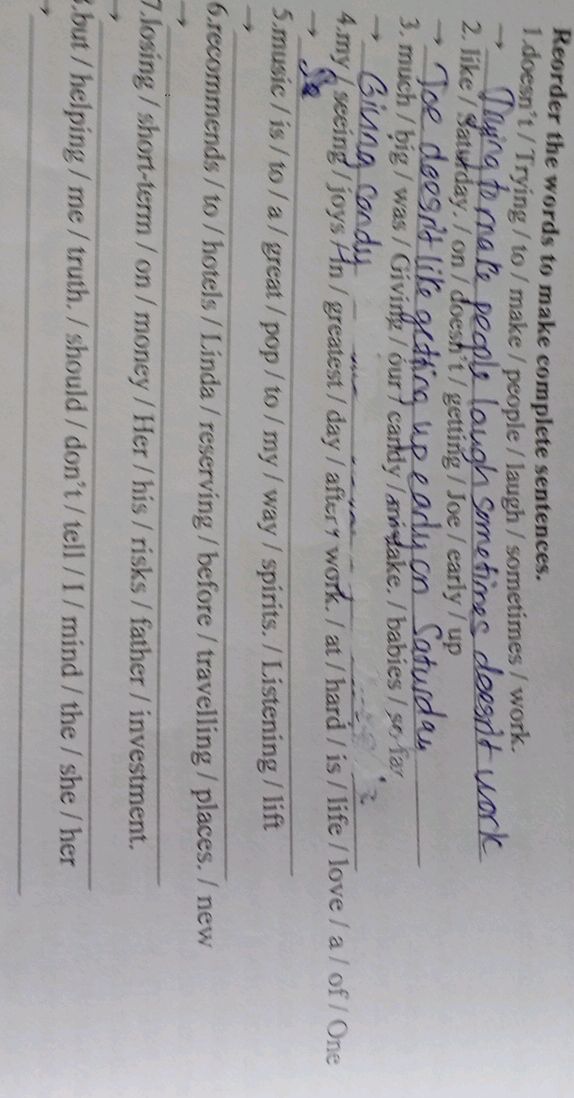 Reorder the words to make complete sentences.
1.doesn't / Trying / to / make / people / laugh / sometimes / work.
→ Trying to make people laugh sometimes doesn't work
2. like / Saturday. / on / doesn't / getting / Joe / early / up
→ Joe doesn't like getting up early on Saturday
3. much / big / was / Giving / our / candy / a mistake. / babies / so far
→ Giving candy
4.my / seeing / joys / In / greatest / day / after / work. / at / hard / is / life / love / a / of / One
→
5.music / is / to / a / great / pop / to / my / way / spirits. / Listening / lift
→
6.recommends / to / hotels / Linda / reserving / before / travelling / places. / new
→
7.losing / short-term / on / money / Her / his / risks / father / investment.
→
.but / helping / me / truth. / should / don't / tell / I / mind / the / she / her
→